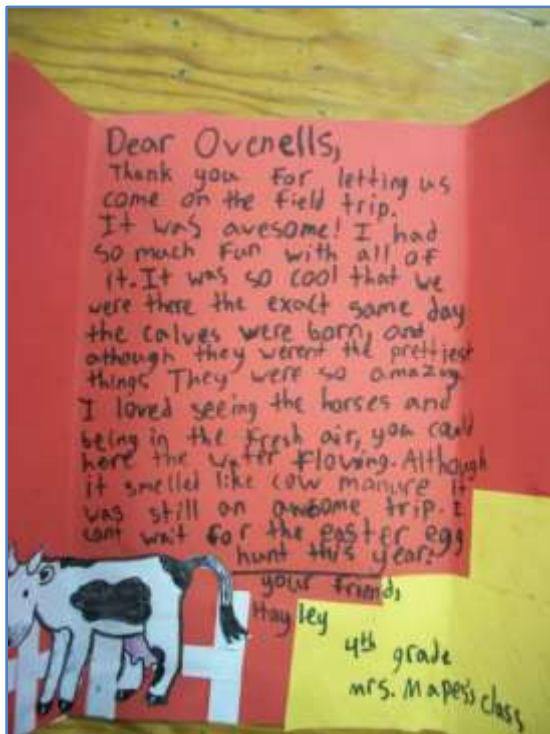 Dear Ovenells,
Thank you for letting us
come on the field trip.
It was avesome! I had
so much fun with all of
it. It was so cool that we
were there the exact same day
the calves were born, and
athough they werent the prettiest
things They were so amazing.
I loved seeing the horses and
being in the fresh air, you could
here the water flowing. Although
it smelled like cow manure it
was still an awesome trip. I
cant wait for the easter egg
hunt this year!
your friend,
Hayley
4th grade
mrs. Mapes's class